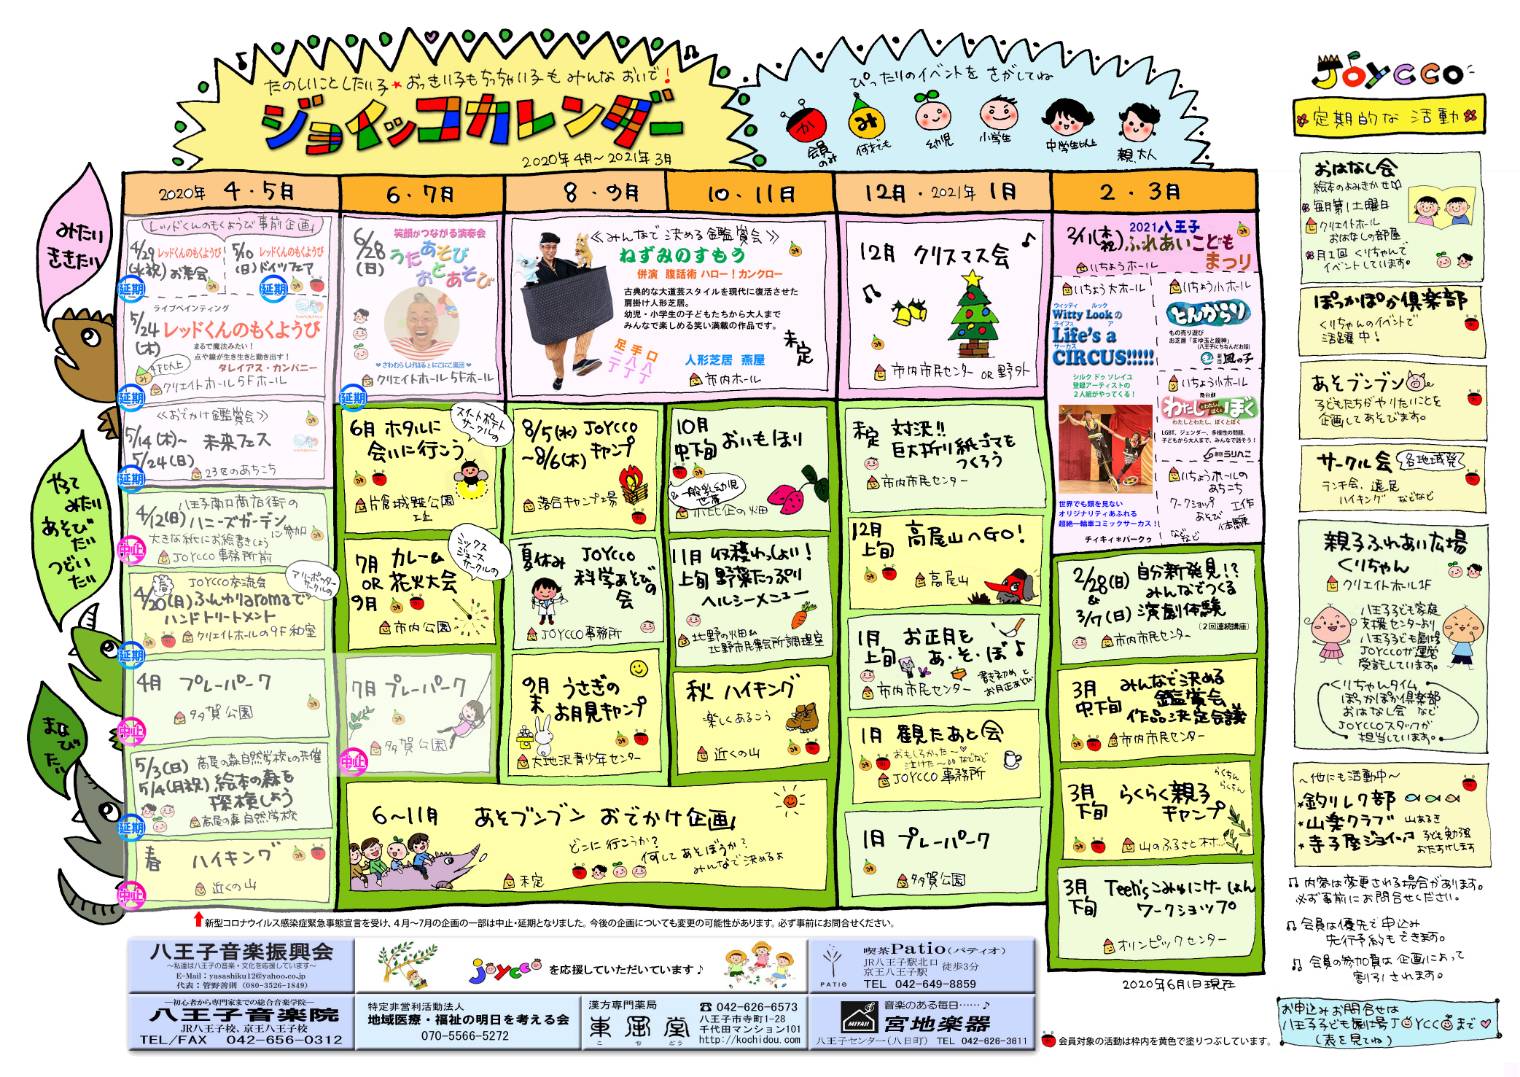 たのしいことしたい子★おっきい子もちっちゃい子も みんな おいで!
ジョイッコカレンダー
2020年4月〜2021年3月
ぴったりのイベントを さがしてね
か
会員のみ
み
何才でも
幼児
小学生
中学生以上
親、大人
JOYCCO
定期的な活動
おはなし会
絵本のよみきかせ
毎月第1土曜日
クリエイトホール
おはなしの部屋
月1回 くりちゃんで
イベントしています。
ぽっかぽか倶楽部
くりちゃんのイベントで
活躍中!
あそブンブン
子どもたちがやりたいことを
企画してあそびます。
サークル会
各地域発
ランチ会、遠足
ハイキング などなど
親子ふれあい広場
くりちゃん
クリエイトホール1F
八王子子ども家庭
支援センターより
八王子子ども劇場
JOYCCOが運営
受託しています。
くりちゃんタイム
ぽっかぽか倶楽部
おはなし会 など
JOYCCOスタッフが
担当しています。
〜他にも活動中〜
★釣りレク部
★山楽クラブ 山あるき
★寺子屋ジョイッコ 子ども勉強
おたすけします
♫ 内容は変更される場合があります。
必ず事前にお問合せください。
♪ 会員は優先で申込み
先行予約もできます。
♫ 会員の参加費は企画によって
割引されます。
お申込みお問合せは
八王子子ども劇場JOYCCOまで
(表を見てね)
みたり
ききたり
やってみたり
あそびたい
つどいたい
まなびたい
2020年 4・5月
レッドくんのもくようび 事前企画
4/29(水祝)
レッドくんのもくようび
お茶会
延期
5/10(日)
レッドくんのもくようび
ドイツフェア
延期
ライブペインティング
5/24(木)
レッドくんのもくようび
まるで魔法みたい!
点や線が生き生きと動き出す!
タレイアス・カンパニー
4才以上
クリエイトホール5Fホール
延期
≪おでかけ鑑賞会≫
5/14(木)〜5/24(日)
未来フェス
23区のあちこち
延期
八王子南口商店街の
4/12(日) ハニーズガーデン
に参加
大きな紙にお絵書きしよう
JOYCCO事務所前
中止
JOYCCO交流会
アリーポッターサークルの
4/20(月) ふんわりaromaで
ハンドトリートメント
クリエイトホールの9F和室
延期
4月 プレーパーク
多賀公園
中止
5/3(日) 高尾の森自然学校との共催
5/4(月祝) 絵本の森を
探検しよう
高尾の森自然学校
延期
春 ハイキング
近くの山
中止
6・7月
6/28(日)
笑顔がつながる演奏会
うたあそび
おとあそび
クリエイトホール5Fホール
延期
スイートポテトサークルの
6月 ホタルに
会いに行こう
片倉城跡公園
ミックスジュースサークルの
7月 OR 9月
カレーム
花火大会
市内公園
7月 プレーパーク
多賀公園
中止
6〜11月 あそブンブン おでかけ企画
どこに行こうか?
何してあそぼうか?
みんなで決めるよ
未定
8・9月
10・11月
≪みんなで決める鑑賞会≫
ねずみのすもう
併演 腹話術 ハロー!カンクロー
古典的な大道芸スタイルを現代に復活させた
肩掛け人形芝居。
幼児・小学生の子どもたちから大人まで
みんなで楽しめる笑い満載の作品です。
口八丁
手八丁
足二丁
人形芝居 燕屋
未定
市内ホール
8/5(水)〜8/6(木)
JOYCCO
キャンプ
落合キャンプ場
夏休み JOYCCO
科学あそびの会
JOYCCO事務所
9月末 うさぎの
お月見キャンプ
大地沢青少年センター
10月中下旬 おいもほり
&一般乳幼児世帯
小比企の畑
11月上旬 収穫わっしょい!
野菜たっぷり
ヘルシーメニュー
北野の畑&
北野市民集会所調理室
秋 ハイキング
楽しくあるこう
近くの山
12月・2021年1月
12月 クリスマス会
市内市民センター OR 野外
未定 対決!!
巨大折り紙こまを
つくろう
市内市民センター
12月上旬 高尾山へGO!
高尾山
1月上旬 お正月を
あ・そ・ぼ♪
書き初めと
お正月あそび
市内市民センター
1月 観たあと会
おもしろかった〜
泣けた〜 などなど
JOYCCO事務所
1月 プレーパーク
多賀公園
2・3月
2/11(木祝)
2021八王子
ふれあいこどもまつり
いちょうホール
いちょう大ホール
ウィッティ ルック
Witty Lookの
ライフズ ア
Life's a
サーカス
CIRCUS!!!!!
シルク ドゥ ソレイユ
登録アーティストの
2人組がやってくる!
世界でも類を見ない
オリジナリティあふれる
超絶一輪車コミックサーカス!
チィキィ*パークゥ
いちょう小ホール
とんからり
もの売り遊び
お芝居「まゆ玉と龍神」
(八王子にちなんだお話)
風の子
いちょう小ホール
わたしとわたし、ぼくとぼく
LGBT、ジェンダー、多様性の問題、
子どもから大人まで、みんなで話そう!
劇団うりんこ
いちょうホールの
あちこち
ワークショップ 工作
あそび 体験
などなど
2/28(日)&3/7(日)
自分新発見!?
みんなでつくる
演劇体験
(2回連続講座)
市内市民センター
3月中下旬 みんなで決める
鑑賞会
作品決定会議
市内市民センター
3月下旬 らくらく親子
キャンプ
らくちんらくちん
山のふるさと村
3月下旬 Teen'sこみゅにけーしょん
ワークショップ
オリンピックセンター
新型コロナウイルス感染症緊急事態宣言を受け、4月〜7月の企画の一部は中止・延期となりました。今後の企画についても変更の可能性があります。必ず事前にお問合せください。
2020年6月1日現在
八王子音楽振興会
〜私達は八王子の音楽・文化を応援しています〜
E-Mail:yasashiku12@yahoo.co.jp
代表:菅野善則(080-3526-1849)
joycco を応援していただいています♪
PATIO
喫茶Patio(パティオ)
JR八王子駅北口
京王八王子駅 徒歩3分
TEL 042-649-8859
―初心者から専門家までの総合音楽学院―
八王子音楽院
JR八王子校、京王八王子校
TEL/FAX 042-656-0312
特定非営利活動法人
地域医療・福祉の明日を考える会
070-5566-5272
漢方専門薬局
東風堂
こちどう
☎042-626-6573
八王子市寺町1-28
千代田マンション101
http://kochidou.com
MIYAJI
音楽のある毎日……♪
宮地楽器
八王子センター(八日町) TEL 042-626-3611
会員対象の活動は枠内を黄色で塗りつぶしています。